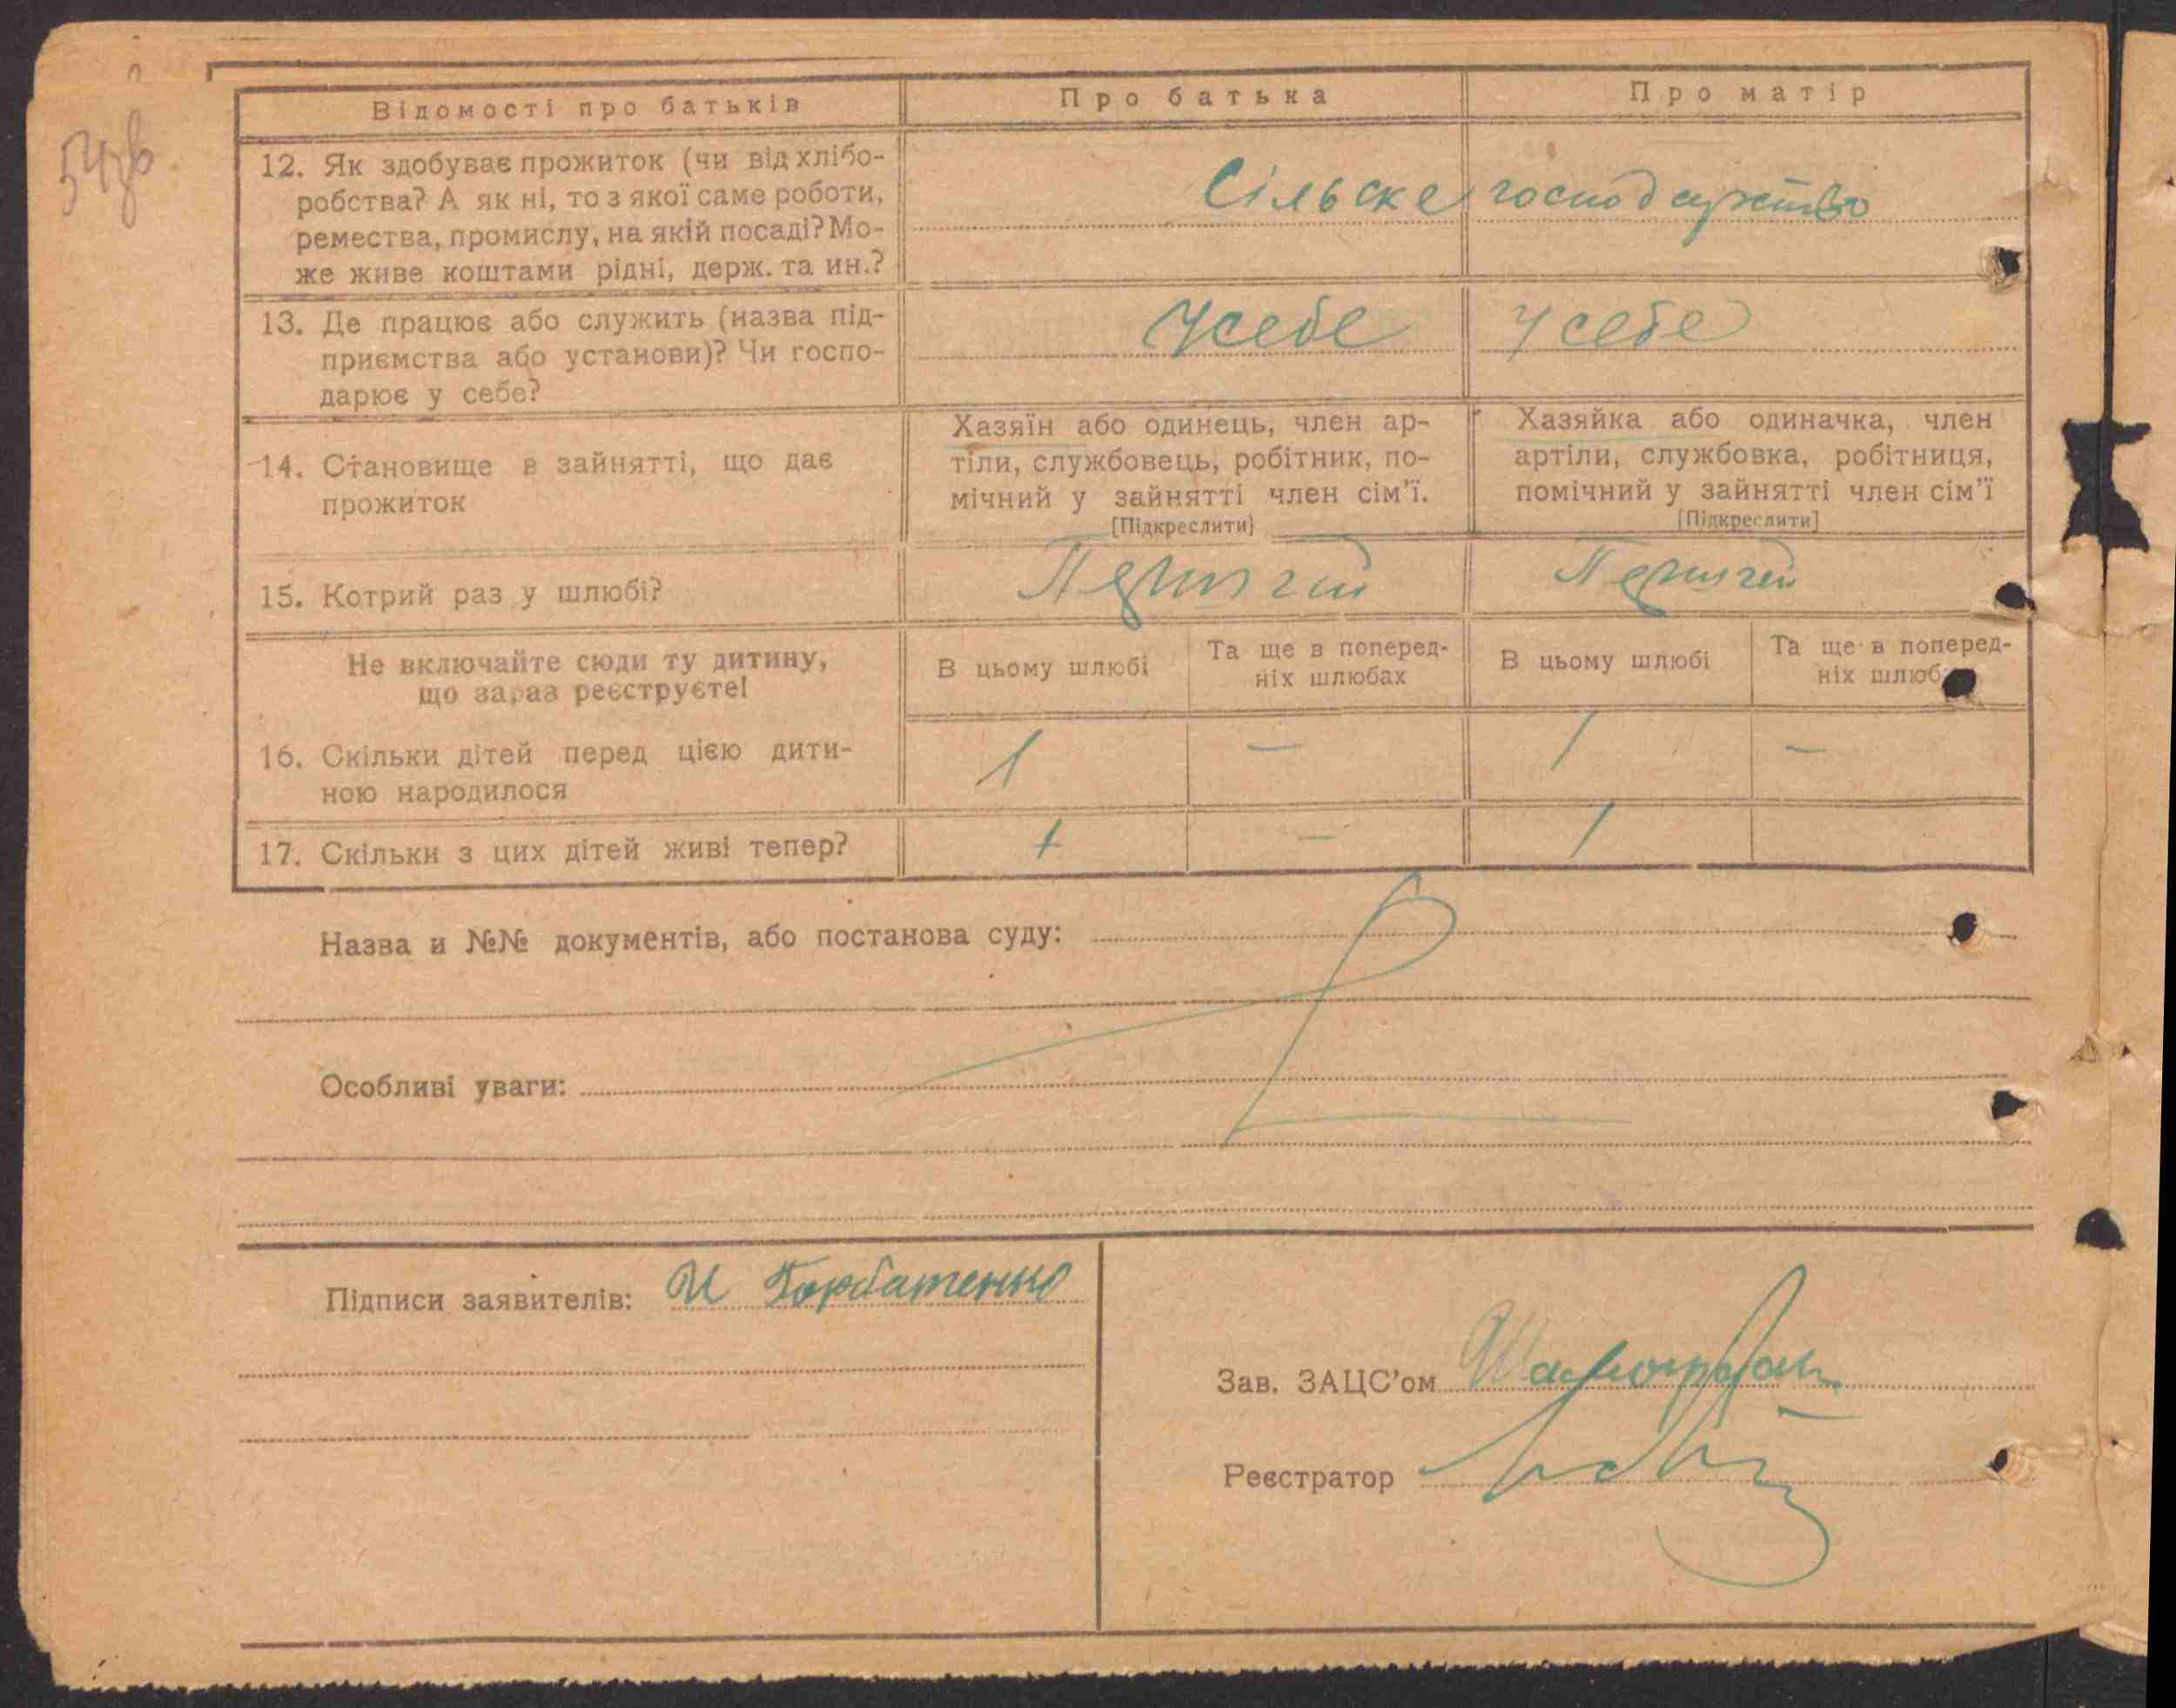 54зв.
Відомості про батьків
Про батька
Про матір
12. Як здобуває прожиток (чи від хлібо-
робства? А як ні, то з якої саме роботи,
ремества, промислу, на якій посаді? Мо-
же живе коштами рідні, держ. та ин.?
Сільске господарство
13. Де працює або служить (назва під-
приємства або установи)? Чи госпо-
дарює у себе?
У себе
У себе
14. Становище в зайнятті, що дає
прожиток
Хазяїн або одинець, член ар-
тіли, службовець, робітник, по-
мічний у зайнятті член сім'ї.
[Підкреслити]
Хазяйка або одиначка, член
артіли, службовка, робітниця,
помічний у зайнятті член сім'ї
[Підкреслити]
15. Котрий раз у шлюбі?
Не включайте сюди ту дитину,
що зараз реєструєте!
В цьому шлюбі
Та ще в поперед-
ніх шлюбах
В цьому шлюбі
Та ще в поперед-
ніх шлюб
16. Скільки дітей перед цією дити-
ною народилося
1
—
1
—
17. Скільки з цих дітей живі тепер?
1
—
1
Назва и №№ документів, або постанова суду:
Особливі уваги:
Підписи заявителів: И Горбатенко
Зав. ЗАЦС'ом
Реєстратор